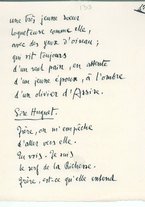 une très jeune soeur
loqueteuse comme elle,
avec des yeux d'oiseau ;
qui vit toujours
d'un seul pain, en attente
d'un jeune époux, à l'ombre
d'un olivier d'Assise.
Sire Huguet.
Frère, on m'empêche
d'aller vers elle.
Tu vois - Je suis
le serf de la Richesse.
Frère, est-ce qu'elle entend